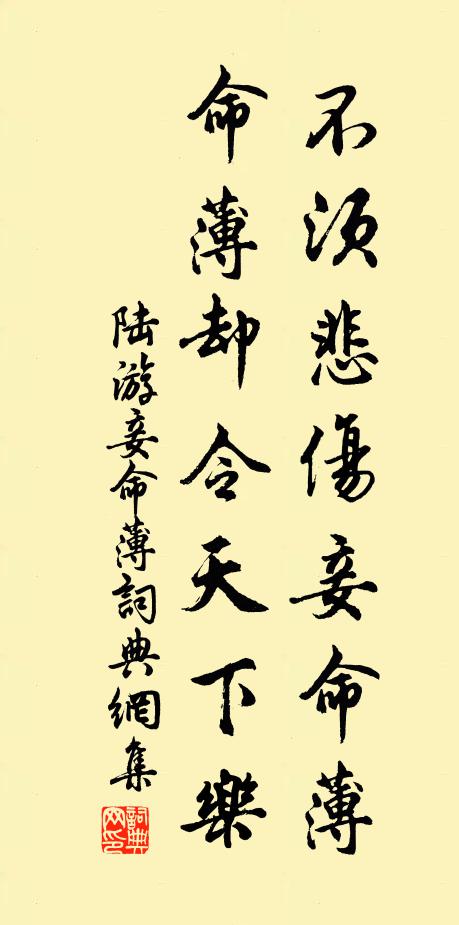 不須悲傷妾命薄
命薄却令天下樂
陸游妾命薄詞典網集
詞典網印